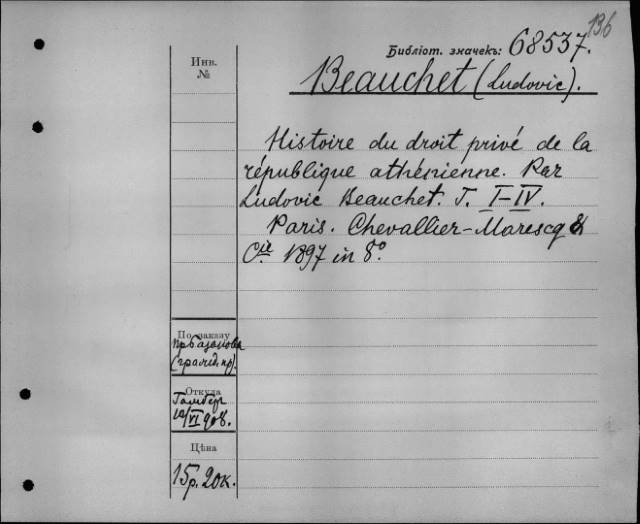 136
Библіот. значекъ: 68537.
Инв.
№
Beauchet (Ludovic).
Histoire du droit privé de la
république athénienne. Par
Ludovic Beauchet. T. I–IV.
Paris. Chevallier–Marescq &
Cie 1897 in 8o.
По заказу
(гражд. пр).
Откуда
10/VI 908.
Цѣна
15р. 20к.